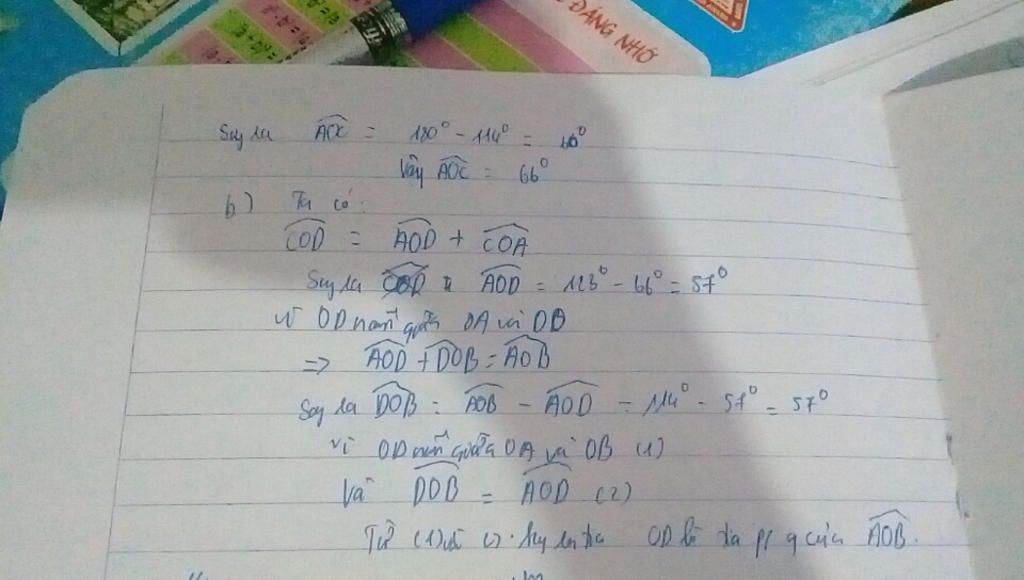 ĐÁNG NHỚ
Suy ra AOC = 180° - 114° = 66°
Vậy AOC = 66°
b) Ta có:
COD = AOD + COA
Suy ra AOD = 123° - 66° = 57°
Vì OD nằm giữa OA và OB
=> AOD + DOB = AOB
Suy ra DOB = AOB - AOD = 114° - 57° = 57°
Vì OD nằm giữa OA và OB (1)
Và DOB = AOD (2)
Từ (1) và () suy ra tia OD là tia p/g của AOB.